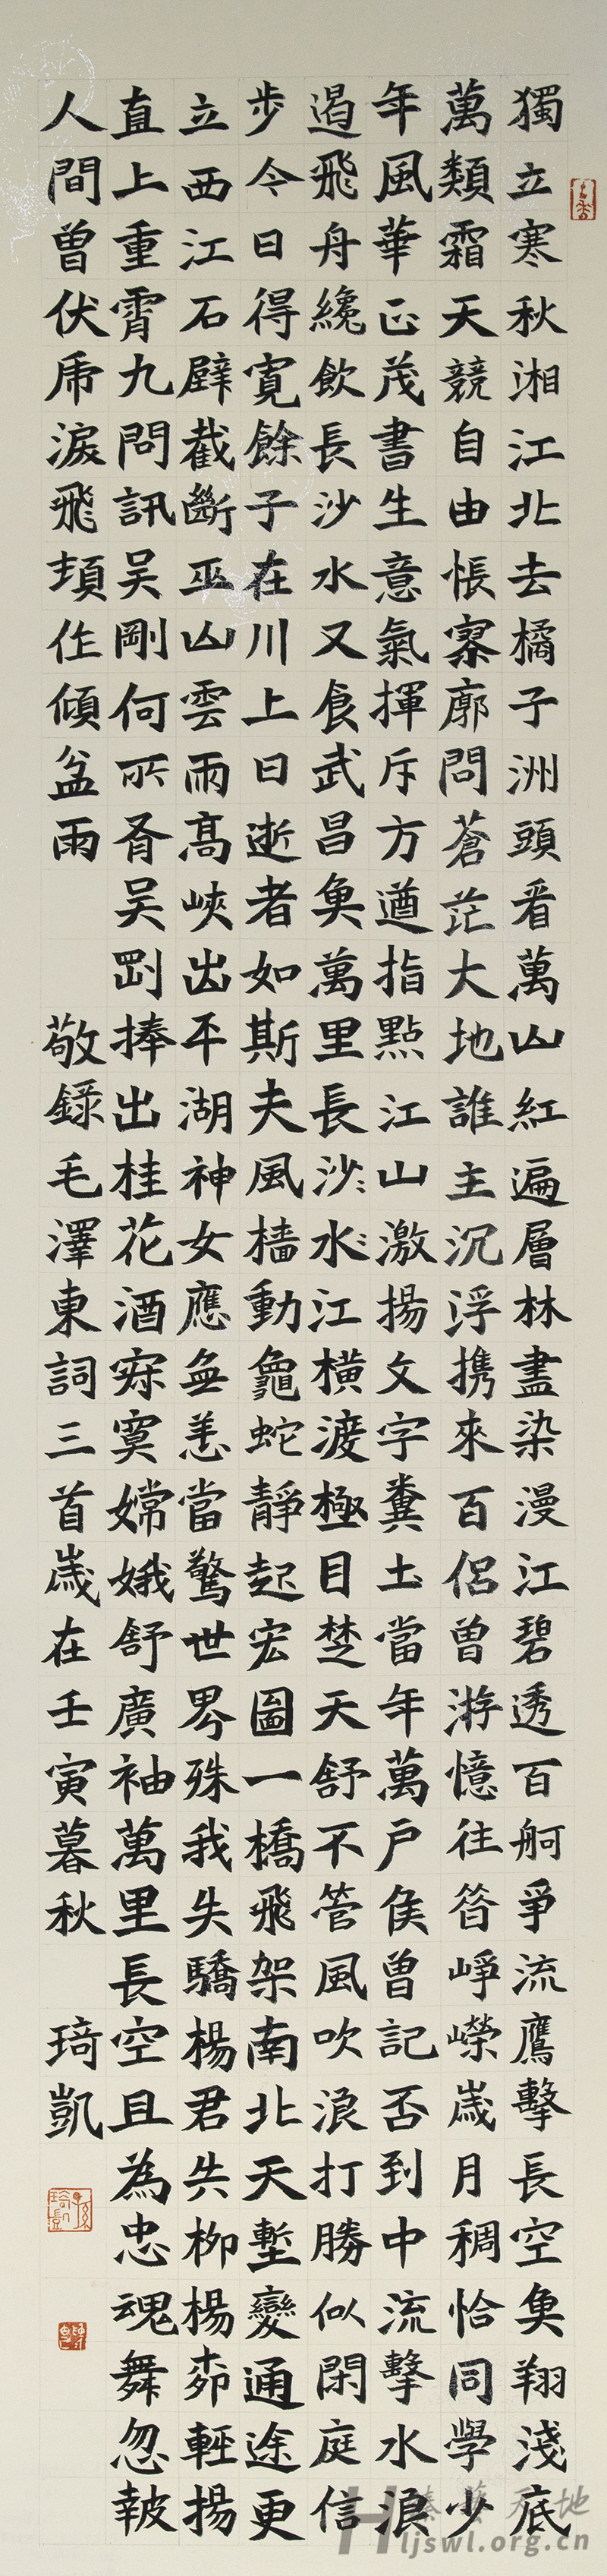 獨立寒秋湘江北去橘子洲頭看萬山紅遍層林盡染漫江碧透百舸爭流鷹擊長空魚翔淺底
萬類霜天競自由悵寥廓問蒼茫大地誰主沉浮携來百侶曾游憶往昔崢嶸歲月稠恰同學少
年風華正茂書生意氣揮斥方遒指點江山激揚文字糞土當年萬戶侯曾記否到中流擊水浪
遏飛舟纔飲長沙水又食武昌魚萬里長沙：水：江橫渡極目楚天舒不管風吹浪打勝似閑庭信
步今日得寬餘子在川上曰逝者如斯夫風檣動龜蛇靜起宏圖一橋飛架南北天塹變通途更
立西江石壁截斷巫山雲雨高峽出平湖神女應無恙當驚世界殊我失驕楊君失柳楊柳輕揚
直上重霄九問訊吳剛何所有吳剛捧出桂花酒寂寞嫦娥舒廣袖萬里長空且為忠魂舞忽報
人間曾伏虎淚飛頓作傾盆雨 敬錄毛澤東詞三首歲在壬寅暮秋 琦凱
ljswl.org.cn